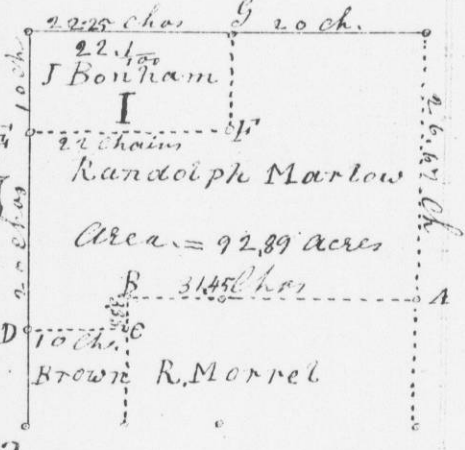 22.25 Chas G 20 ch.
22.1/100
J Bonham
I
10 Ch
22 Chains F
Randolph Marlow
26.67 Ch
20 Chas
Area. = 92,89 acres
B 31.45 Chas A
D 10 Chs. C
Brown R. Morrel